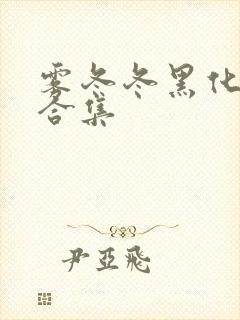 雾冬冬黑化
合集
尹亚飛